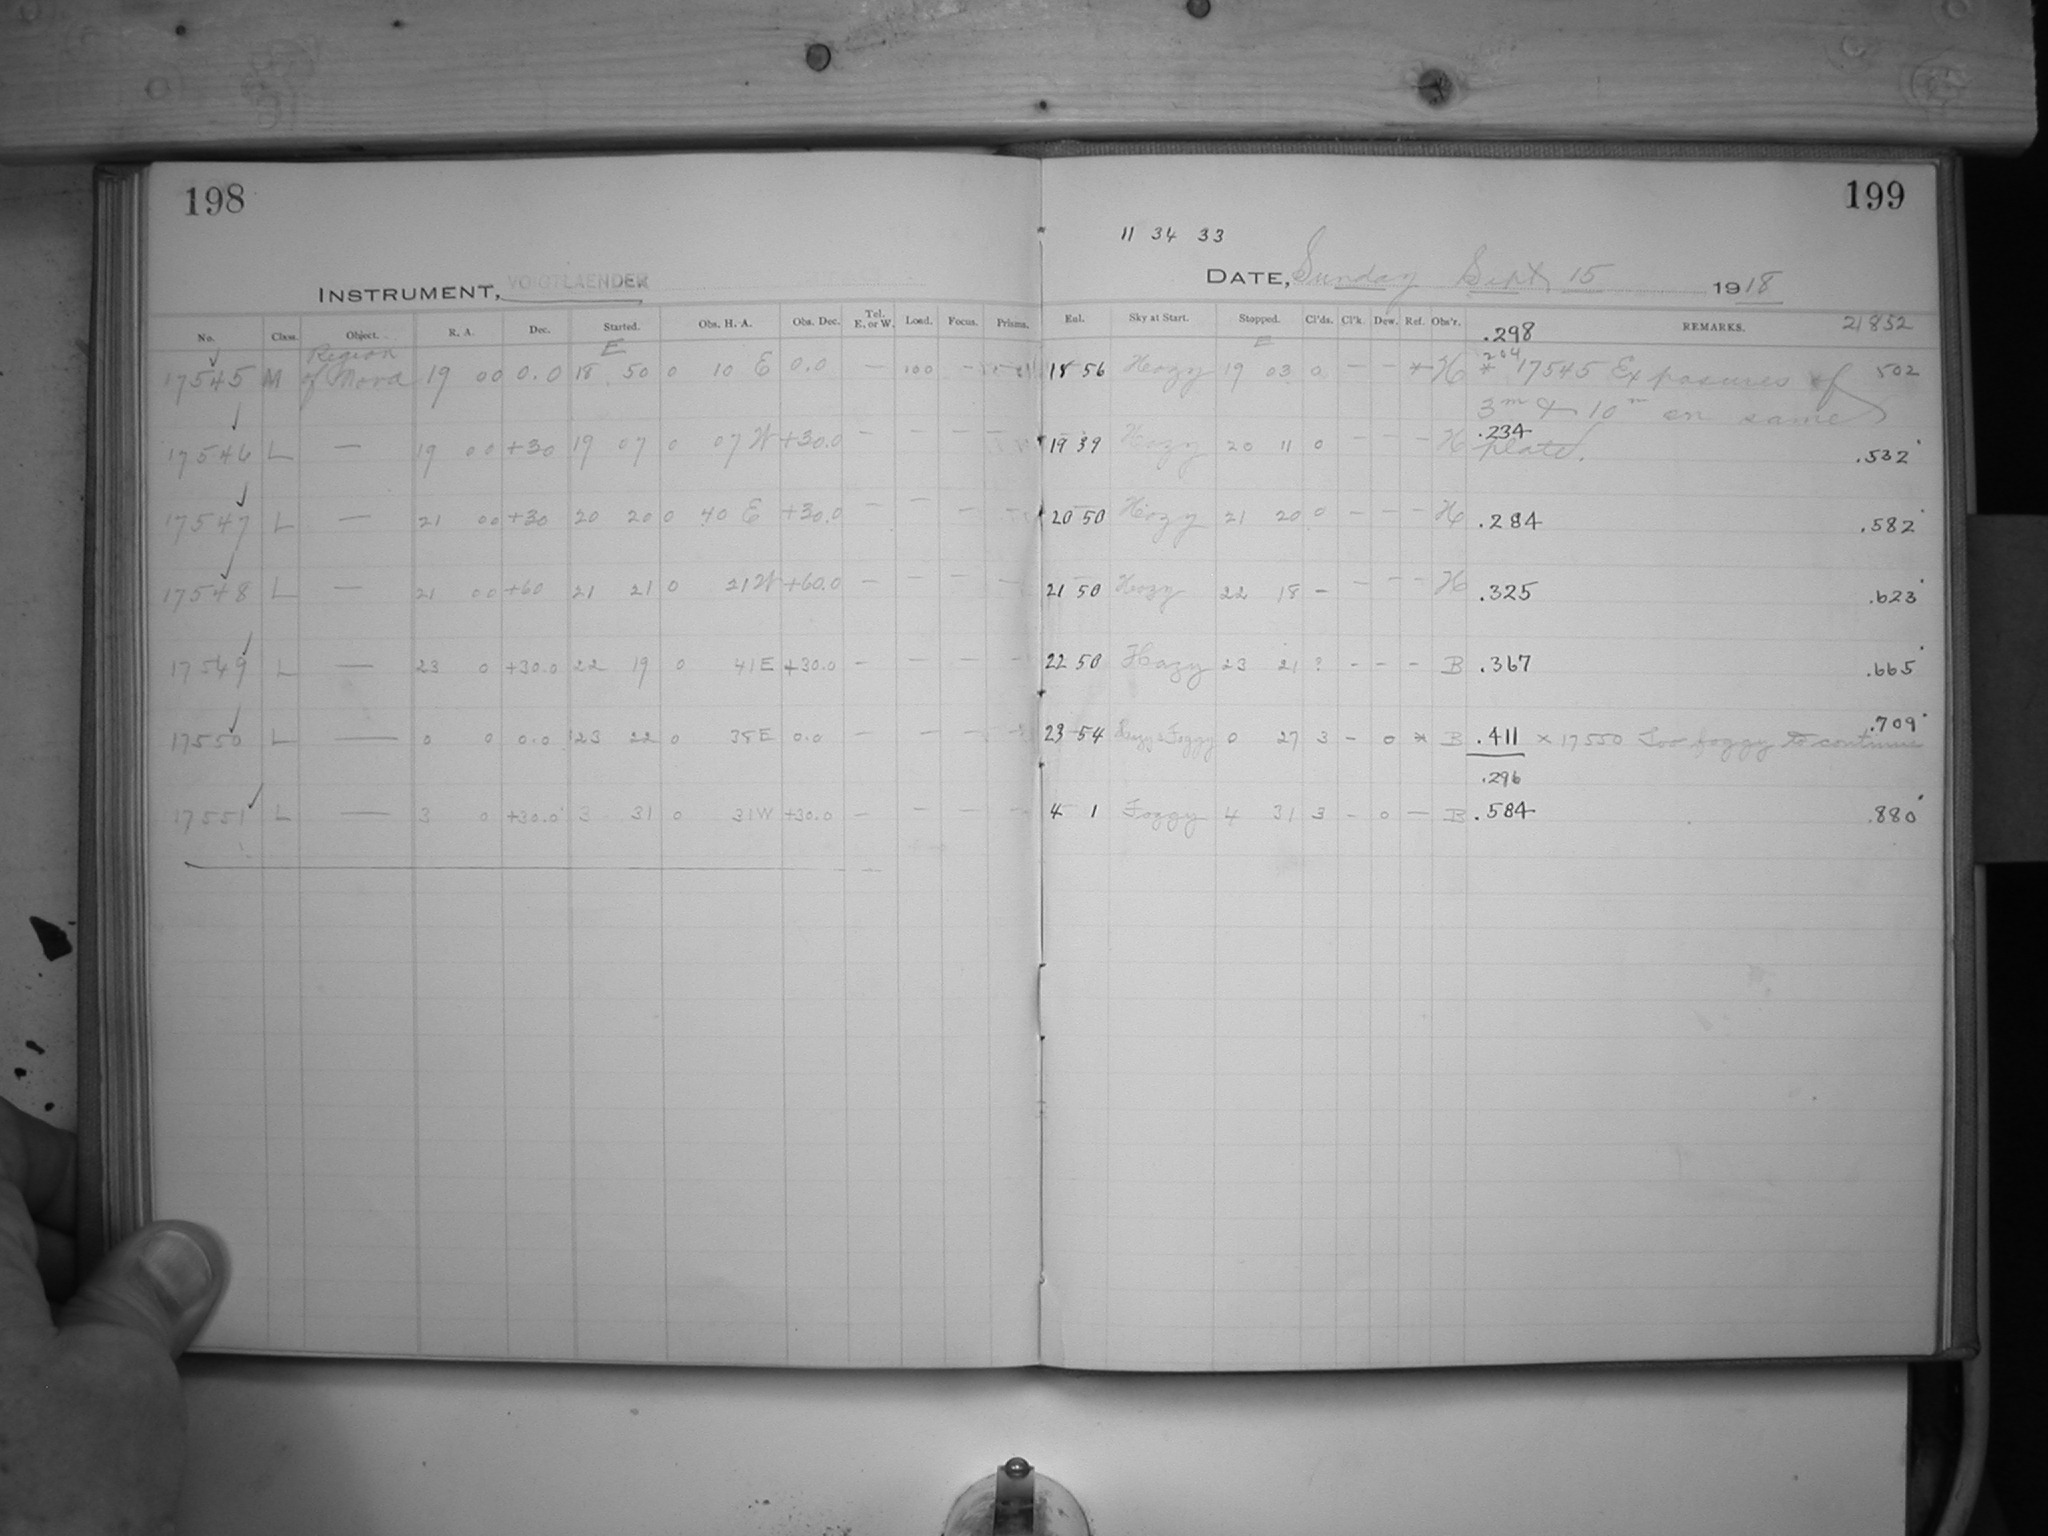 198
INSTRUMENT, VOIGTLAENDER
No. Class. Object. R. A. Dec. Started. Obs. H. A. Obs. Dec. Tel. E. or W. Load. Focus. Prisms.
17545 M Region of Nova 19 00 0.0 E 18 50 0 10 E 0.0 — 100 —
17546 L — 19 00 +30 19 07 0 07 W +30.0 — — — —
17547 L — 21 00 +30 20 20 0 40 E +30.0 — — —
17548 L — 21 00 +60 21 21 0 21 W +60.0 — — — —
17549 L — 23 0 +30.0 22 19 0 41 E +30.0 — — — —
17550 L — 0 0 0.0 23 22 0 38 E 0.0 — — — —
17551 L — 3 0 +30.0 3 31 0 31 W +30.0 — — — —
199
11 34 33
DATE, Sunday Sept 15 1918
Eql. Sky at Start. Stopped. Cl'ds. Cl'k. Dew. Ref. Obs'r. REMARKS. 21852
.298
18 56 Hazy E 19 03 0 — — * H .204 * 17545 Exposures of 502
3m & 10m on same
19 39 Hazy 20 11 0 — — — H .234 plate. .532
20 50 Hazy 21 20 0 — — — H .284 .582
21 50 Hazy 22 18 — — — — H .325 .623
22 50 Hazy 23 21 ? — — — B .367 .665
23 54 Hazy & Foggy 0 27 3 — 0 * B .411 × 17550 Too foggy to continue .709
.296
4 1 Foggy 4 31 3 — 0 — B .584 .880